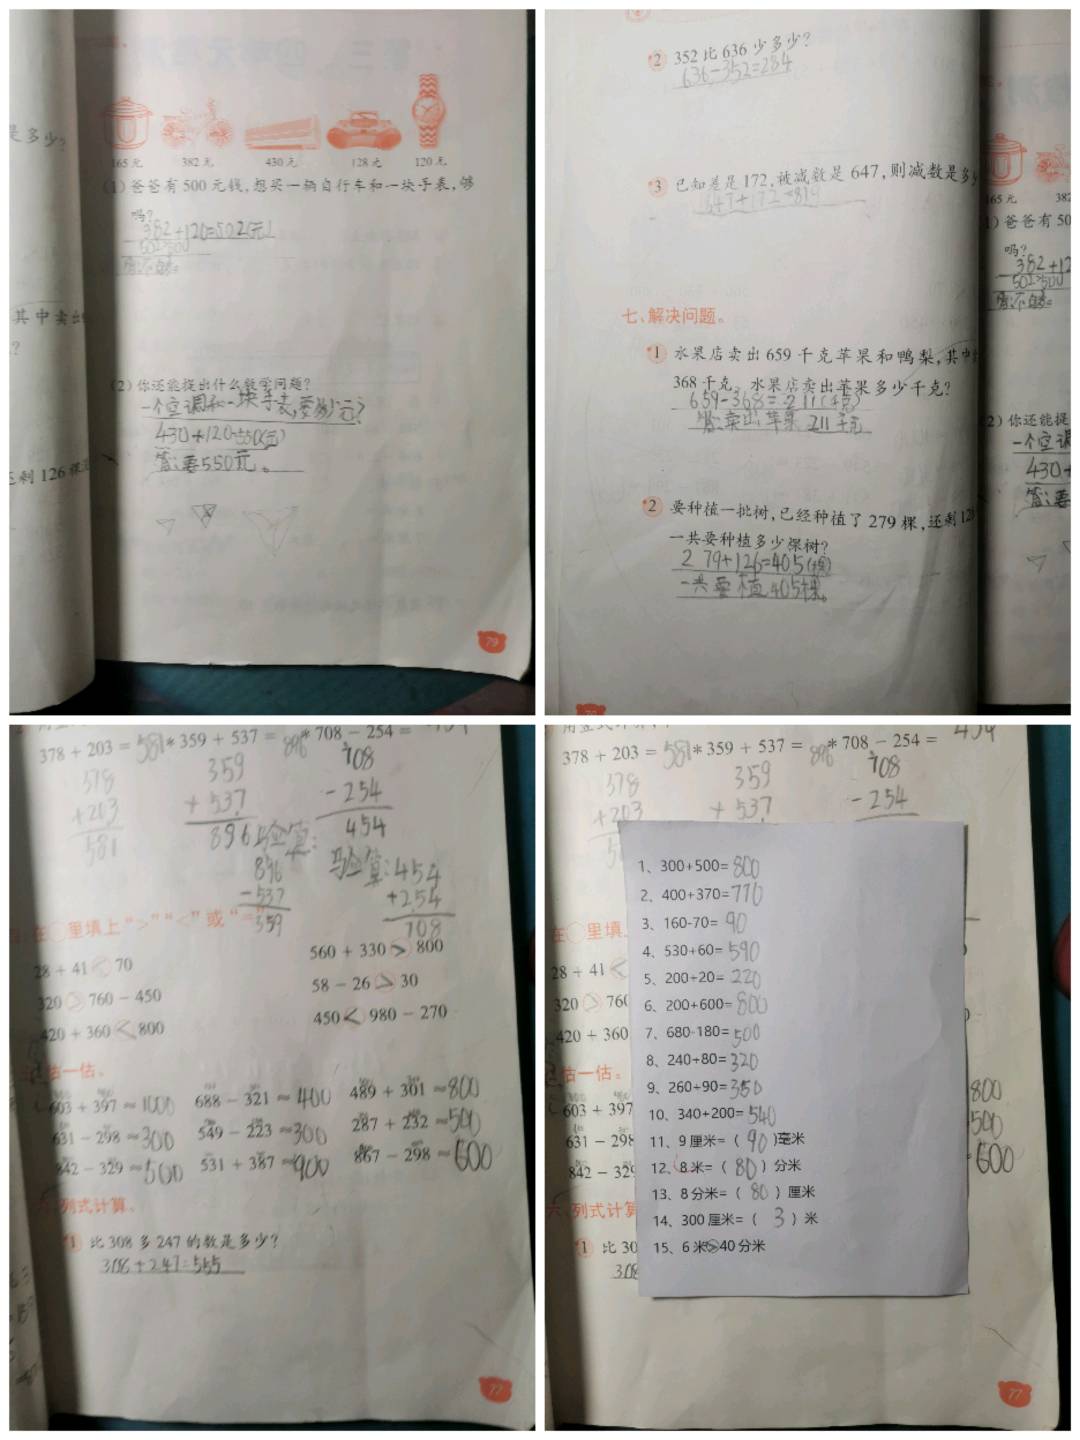 是多少?
其中卖出
?
还剩 126 棵
165 元
382 元
430 元
128 元
120 元
(1) 爸爸有 500 元钱, 想买一辆自行车和一块手表, 够
吗?
382+120=502(元)
502>500
答:不够。
(2) 你还能提出什么数学问题?
一个空调和一块手表,要多少元?
430+120=550(元)
答:要550元。
79
2 352 比 636 少多少?
636-352=284
3 已知差是 172, 被减数是 647, 则减数是多少
647+172=819
七、解决问题。
1 水果店卖出 659 千克苹果和鸭梨, 其中
368 千克。水果店卖出苹果多少千克?
659-368=211(千克)
答:卖出苹果211千克
2 要种植一批树, 已经种植了 279 棵, 还剩 12
一共要种植多少棵树?
279+126=405(棵)
一共要植405棵。
165 元
382
) 爸爸有 50
吗?
382+12
502>500
答:不够。
2) 你还能提
一个空调
430+
答:要
378 + 203 = 581 *359 + 537 = 896 *708 - 254 = 454
378
+203
581
359
+537
896
验算:
896
-537
359
708
-254
454
验算:454
+254
708
在○里填上“>”“<”或“=”
28 + 41 < 70
560 + 330 > 800
320 > 760 - 450
58 - 26 > 30
420 + 360 < 800
450 < 980 - 270
估一估。
603 + 397 ≈ 1000
688 - 321 ≈ 400
489 + 301 ≈ 800
631 - 298 ≈ 300
549 - 223 ≈ 300
287 + 232 ≈ 500
842 - 329 ≈ 500
531 + 387 ≈ 900
867 - 298 ≈ 600
六、列式计算。
1 比 308 多 247 的数是多少?
308+247=555
77
378 + 203 = 581 *359 + 537 = 896 *708 - 254 = 454
378
+203
359
+537
708
-254
在○里填
28 + 41 <
320 > 760
420 + 360
估一估。
603 + 397
631 - 298
842 - 329
800
500
≈600
六、列式计算
1 比 30
308
1、300+500=800
2、400+370=770
3、160-70=90
4、530+60=590
5、200+20=220
6、200+600=800
7、680-180=500
8、240+80=320
9、260+90=350
10、340+200=540
11、9 厘米=( 90 )毫米
12、8 米=( 80 )分米
13、8 分米=( 80 )厘米
14、300 厘米=( 3 )米
15、6 米>40 分米
77